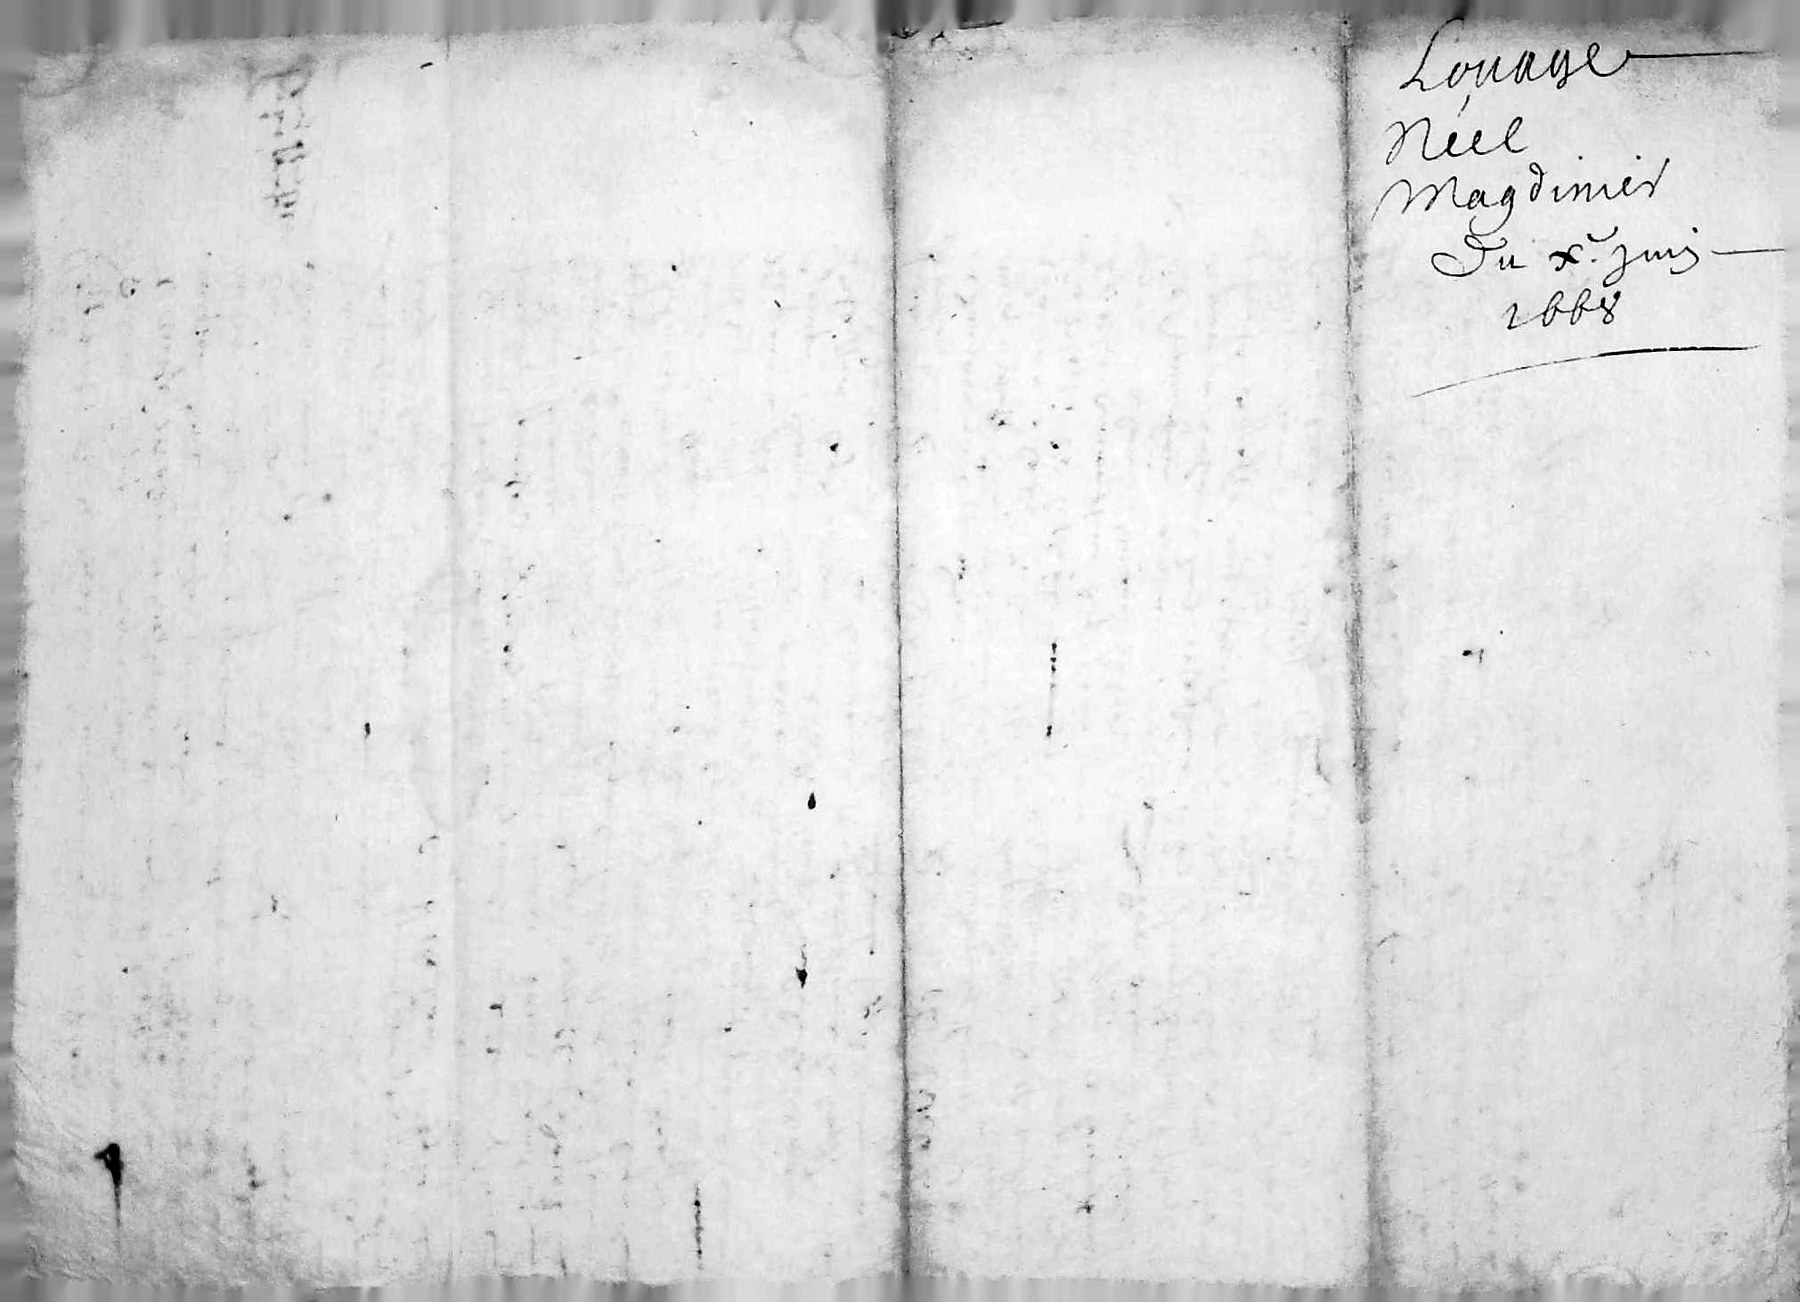 Louage
Néel
Magdinier
Du xe. juin
1668